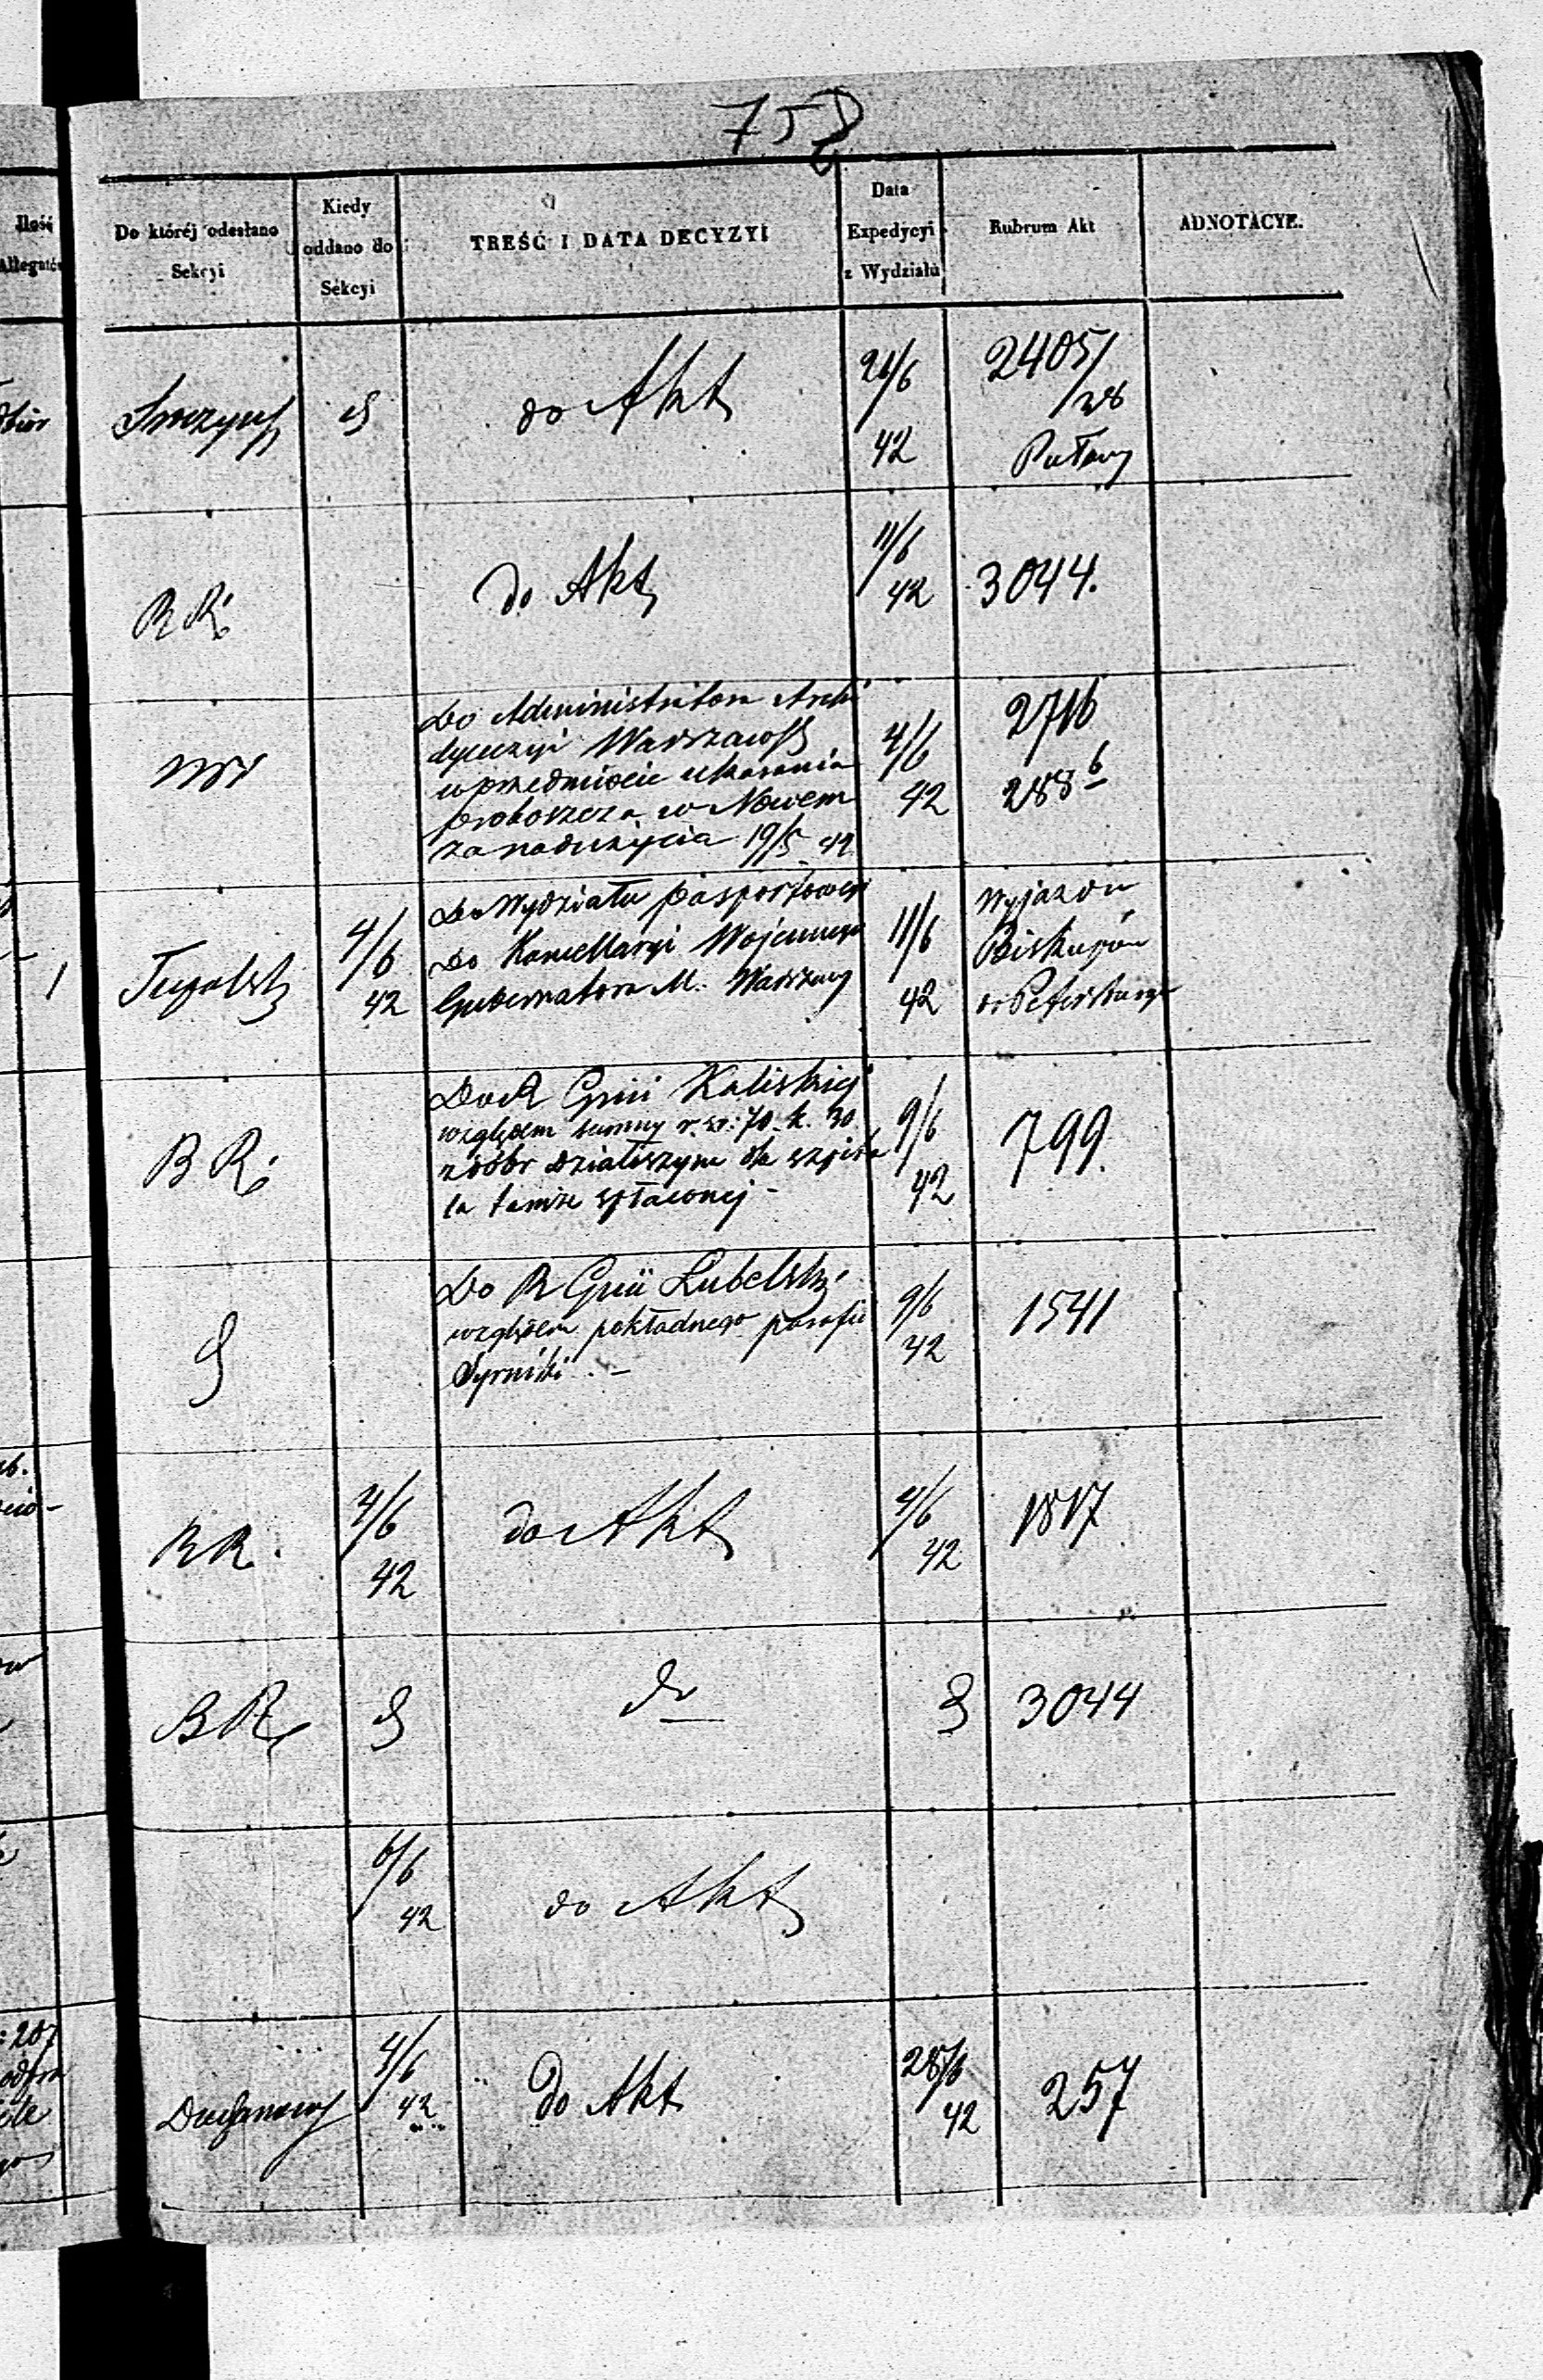 758
Ilość
Allegatów
Do któréj odesłano
Sekcyi
Kiedy
oddano do
Sekcyi
TREŚĆ I DATA DECYZYI
Data
Expedycyi
z Wydziału
Rubrum Akt
ADNOTACYE.
do Akt
21/6
42
2405/
/28
Puławy
RR.
do Akt
11/6
42
3044.
Do Administratora Archi
dyecezyi Warszaws
w przedmiocie ukarania
proboszcza w Nowem
za nadużycia 19/5 42
4/6
42
2716
288 6
4/6
42
Do Wydziału pasportowego
Do Kancellaryi Wojennego
Gubernatora M. Warszawy
11/6
42
Wyjazdu
Biskupów
do Petersburga
BR.
Do R Gnii Kaliskiej
względem summy r. sr: 70. k. 30
z dóbr Działoszyna dla szpita
la tamże spłaconej -
9/6
42
799.
Do R Gnii Lubelsk
względem pokładnego parafii
Syrniki . -
9/6
42
1541
RR.
4/6
42
do Akt
4/6
42
1817
BR
do
3044
6/6
42
do Akt
4/6
42
do Akt
28/6
42
257